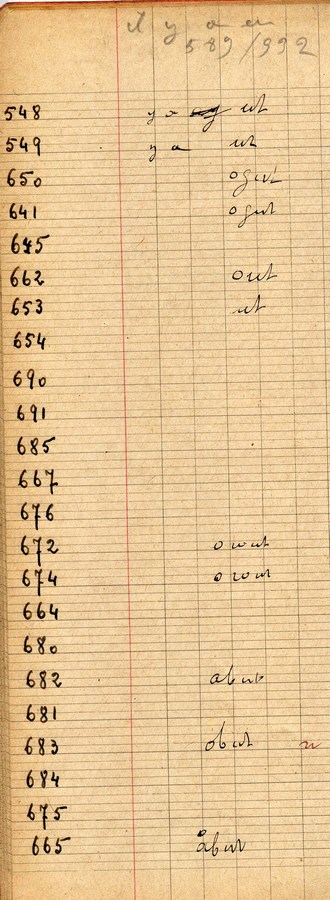 il y a eu
589/992
548 ya ut
549 ya ut
650 ogut
641 ogut
645
662 out
653 ut
654
690
691
685
667
676
672
674
664
680
682 abut
681
683 obut
684
675
665 åbut